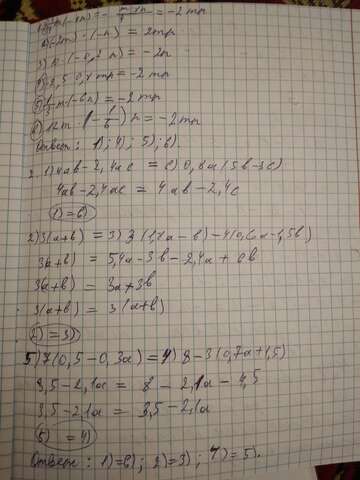 2) (-2m) · (-n) = 2mn
3) n · (-0,2n) = -2n
= -2mn
5) 1/3 m · (-6n) = -2mn
6) 12m · (-1/6) n = -2mn
Ответ: 1); 4); 5); 6).
2. 1) 4ab - 2,4ac = 6) 0,8a (5b - 3c)
4ab - 2,4ac = 4ab - 2,4c
1) = 6)
2) 3(a+b) = 3) 3 (1,8a - b) - 4(0,6a - 1,5b)
3(a+b) = 5,4a - 3b - 2,4a + 6b
3(a+b) = 3a + 3b
3(a+b) = 3(a+b)
2) = 3)
5) 7(0,5 - 0,3a) = 4) 8 - 3(0,7a + 1,5)
3,5 - 2,1a = 8 - 2,1a - 4,5
3,5 - 2,1a = 3,5 - 2,1a
5) = 4)
Ответ: 1) = 6); 2) = 3); 4) = 5).